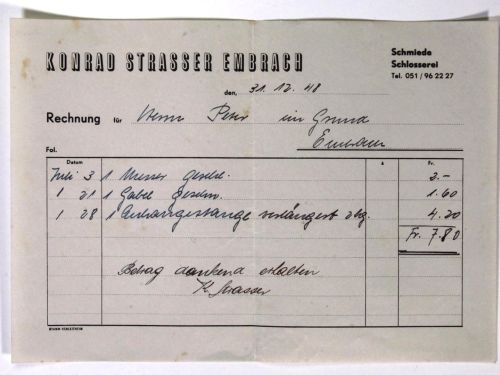 KONRAD STRASSER EMBRACH
Schmiede
Schlosserei
Tel. 051 / 96 22 27
den, 31. 12. 48
Rechnung für Herrn Peter im Grund
Embrach
Fol.
Datum Fr.
Juli 3 1 Messer 2.-
1 21 1 Gabel 1.60
1 28 1 verlängert 4.20
Fr. 7.80
Betrag dankend erhalten
K. Strasser